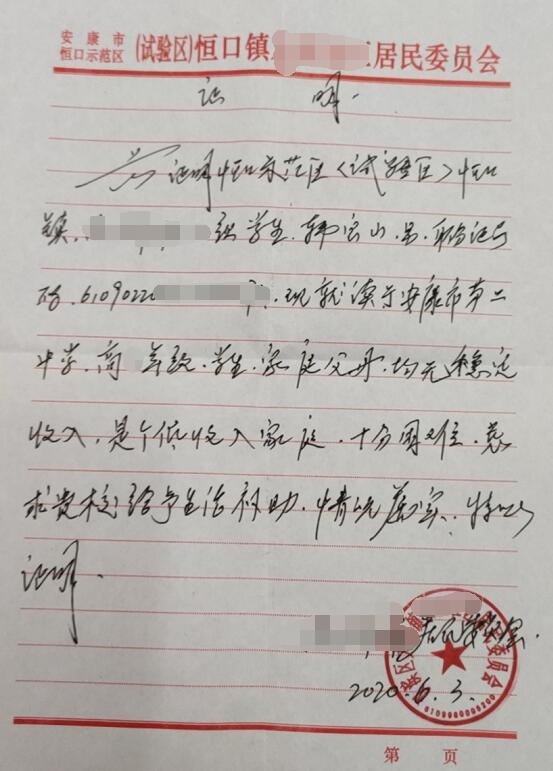 安康市
恒口示范区 (试验区)恒口镇 区居民委员会
证 明.
兹证明恒口示范区(试验区)恒口
镇. 组学生.韩宝山.男.身份证号
码.6109022 .现就读于安康市第二
中学.高 年级.学生.家庭父母.均无稳定
收入.是个低收入家庭.十分困难.恳
求贵校给予生活补助.情况属实.特此
证明.
居民委员会.
2020.6.3.
第 页